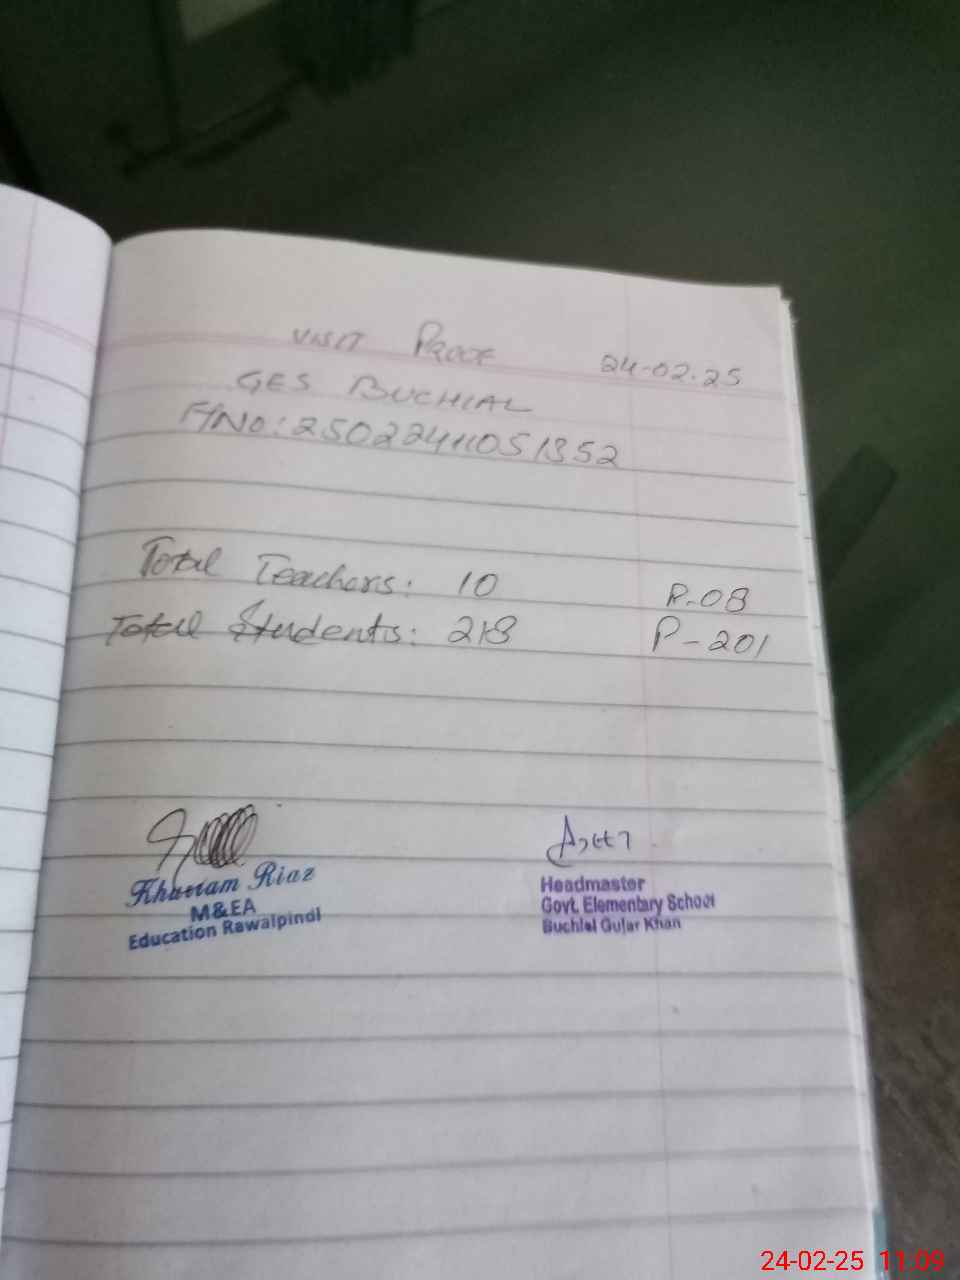 VISIT PROOF 24-02-25
GES BUCHIAL
F/NO: 25022411051352
Total Teachers: 10 P-08
Total Students: 218 P-201
Khurram Riaz
M&EA
Education Rawalpindi
Headmaster
Govt. Elementary School
Buchial Gujar Khan
24-02-25 11:09